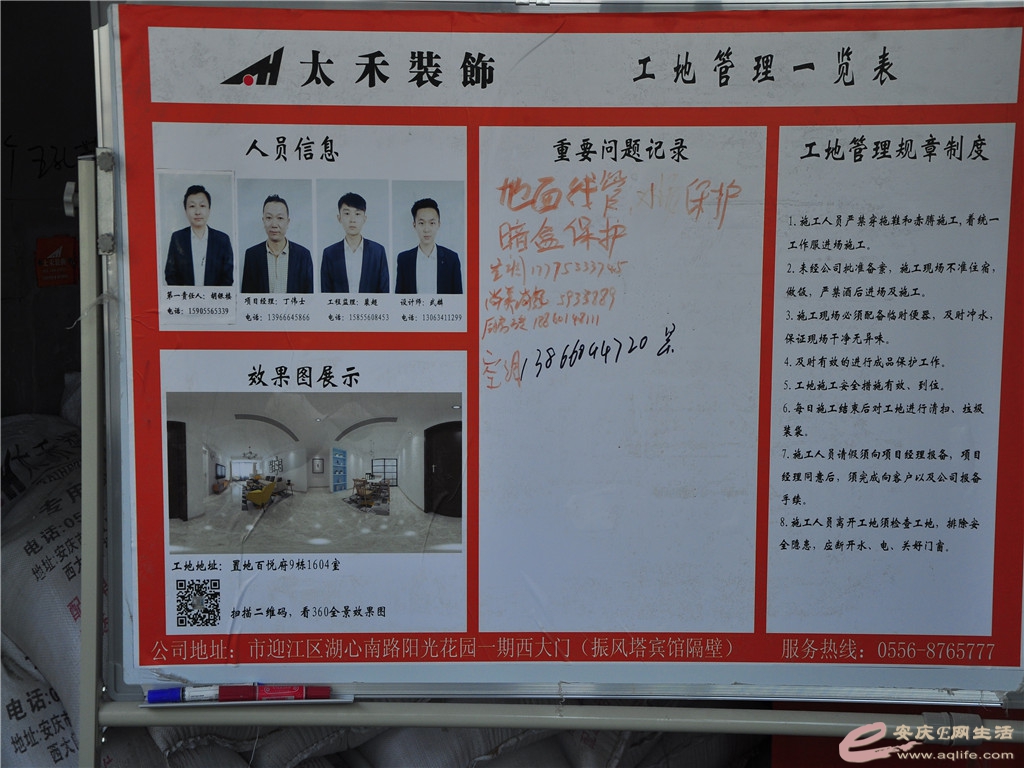 太禾装飾
工地管理一览表
人员信息
第一责任人：胡银格
电话：15905565339
项目经理：丁伟士
电话：13966645866
工程监理：裴超
电话：15855608453
设计师：武麟
电话：13063411299
效果图展示
工地地址：置地百悦府9栋1604室
扫描二维码，看360全景效果图
重要问题记录
地面线管 水 保护
暗盒保护
13866844720
工地管理规章制度
1.施工人员严禁穿拖鞋和赤膊施工，着统一
工作服进场施工。
2.未经公司批准备案，施工现场不准住宿，
做饭，严禁酒后进场及施工。
3.施工现场必须配备临时便器，及时冲水，
保证现场干净无异味。
4.及时有效的进行成品保护工作。
5.工地施工安全措施有效、到位。
6.每日施工结束后对工地进行清扫、垃圾
装袋。
7.施工人员请假须向项目经理报备，项目
经理同意后，须完成向客户以及公司报备
手续。
8.施工人员离开工地须检查工地，排除安
全隐患，应断开水、电、关好门窗。
公司地址：市迎江区湖心南路阳光花园一期西大门（振风塔宾馆隔壁）
服务热线：0556-8765777
专用
电话:05
地址:安庆市
西大
电话:0
地址:安庆市
西大
安庆E网生活
www.aqlife.com